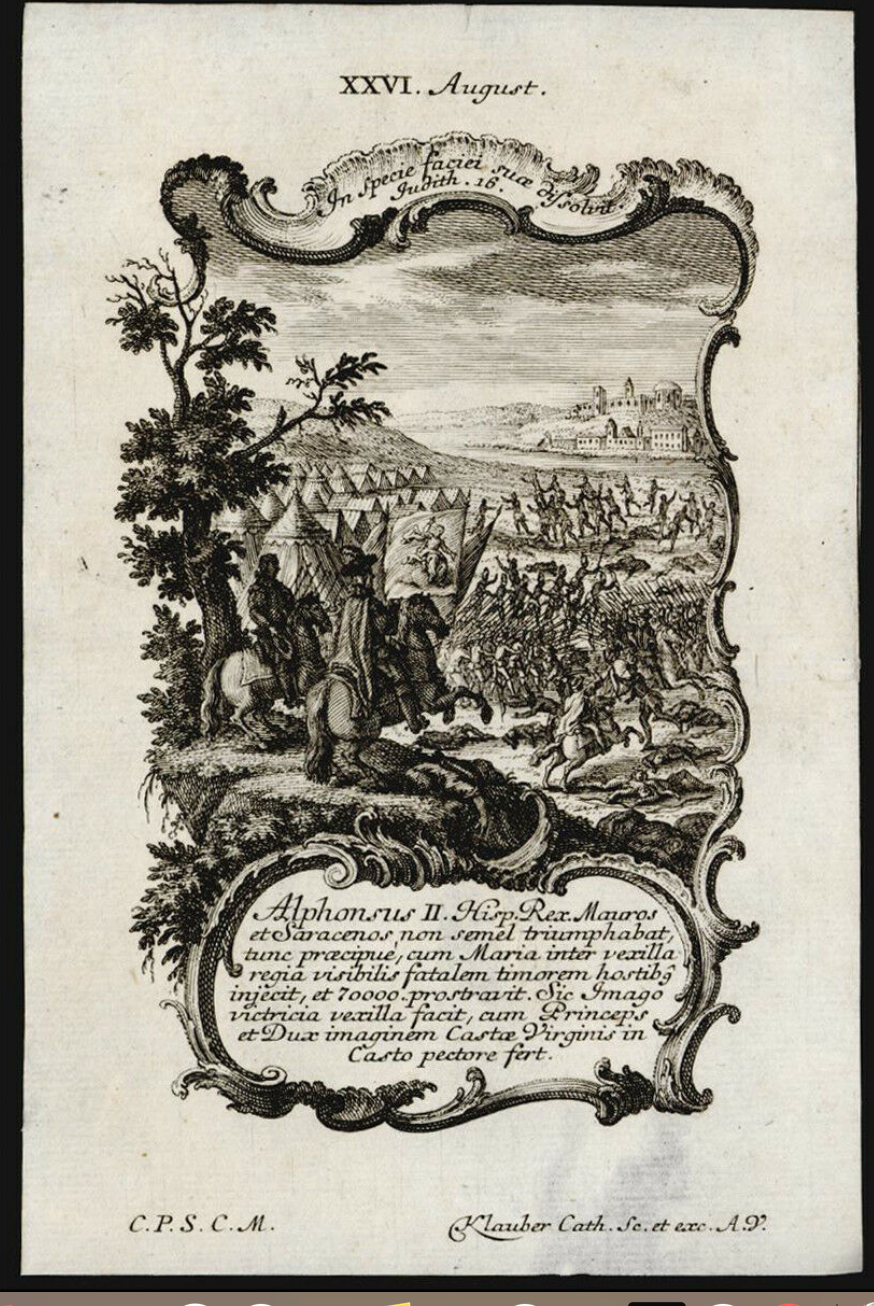 XXVI. August.
In specie faciei suæ dissolvit.
Judith. 16.
Alphonsus II. Hisp. Rex. Mauros
et Saracenos, non semel triumphabat,
tunc præcipue, cum Maria inter vexilla
regia visibilis fatalem timorem hostibꝫ
injecit, et 70000. prostravit. Sic Imago
victricia vexilla facit, cum Princeps
et Dux imaginem Castæ Virginis in
Casto pectore fert.
C. P. S. C. M.
Klauber Cath. Sc. et exc. A. V.